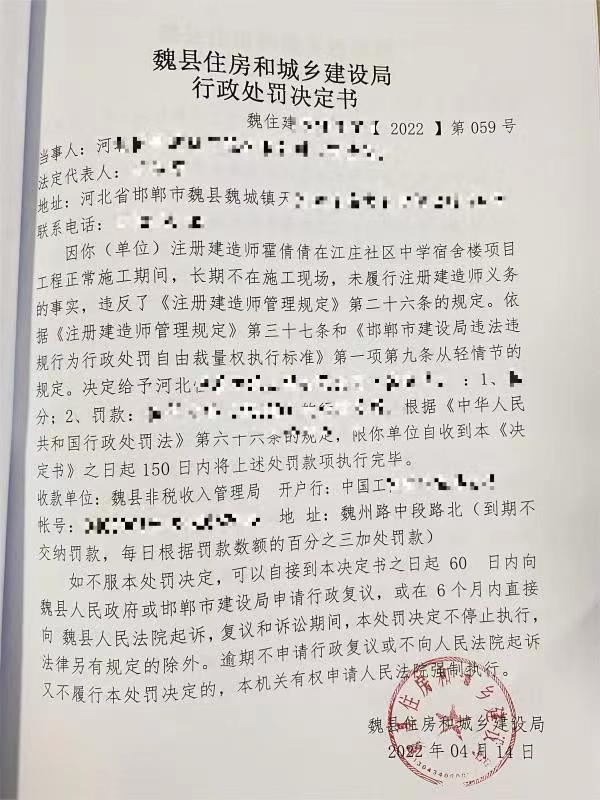 魏县住房和城乡建设局
行政处罚决定书
魏住建【 2022 】第 059 号
当事人：河
法定代表人：
地址：河北省邯郸市魏县魏城镇天
联系电话：
因你（单位）注册建造师霍倩倩在江庄社区中学宿舍楼项目
工程正常施工期间，长期不在施工现场，未履行注册建造师义务
的事实，违反了《注册建造师管理规定》第二十六条的规定。依
据《注册建造师管理规定》第三十七条和《邯郸市建设局违法违
规行为行政处罚自由裁量权执行标准》第一项第九条从轻情节的
规定。决定给予河北：1、
分；2、罚款：根据《中华人民
共和国行政处罚法》第六十六条的规定，限你单位自收到本《决
定书》之日起 150 日内将上述处罚款项执行完毕。
收款单位：魏县非税收入管理局 开户行：中国工
帐号：地 址：魏州路中段路北（到期不
交纳罚款，每日根据罚款数额的百分之三加处罚款）
如不服本处罚决定，可以自接到本决定书之日起 60 日内向
魏县人民政府或邯郸市建设局申请行政复议，或在 6 个月内直接
向 魏县人民法院起诉，复议和诉讼期间，本处罚决定不停止执行，
法律另有规定的除外。逾期不申请行政复议或不向人民法院起诉
又不履行本处罚决定的，本机关有权申请人民法院强制执行。
魏县住房和城乡建设局
2022 年 04 月 14 日